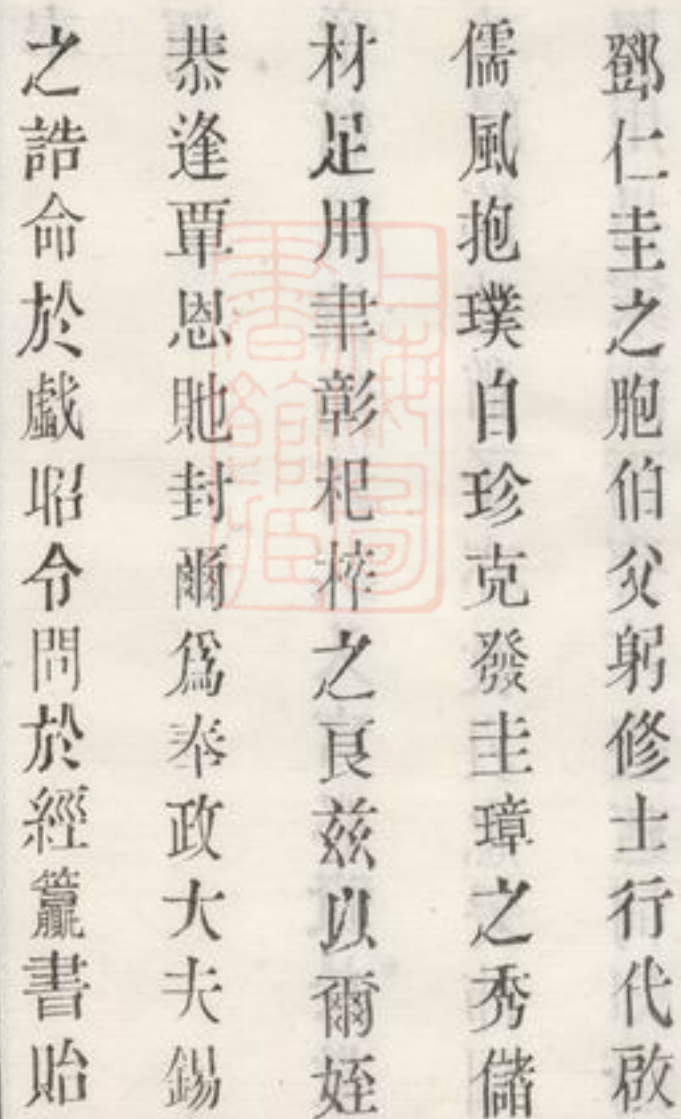 鄧仁圭之胞伯父躬修士行代啟
儒風抱璞自珍克發圭璋之秀儲
材足用聿彰杞梓之良兹以爾姪
恭逢覃恩貤封爾爲奉政大夫錫
之誥命於戲昭令問於經籯書貽
上海圖書館藏